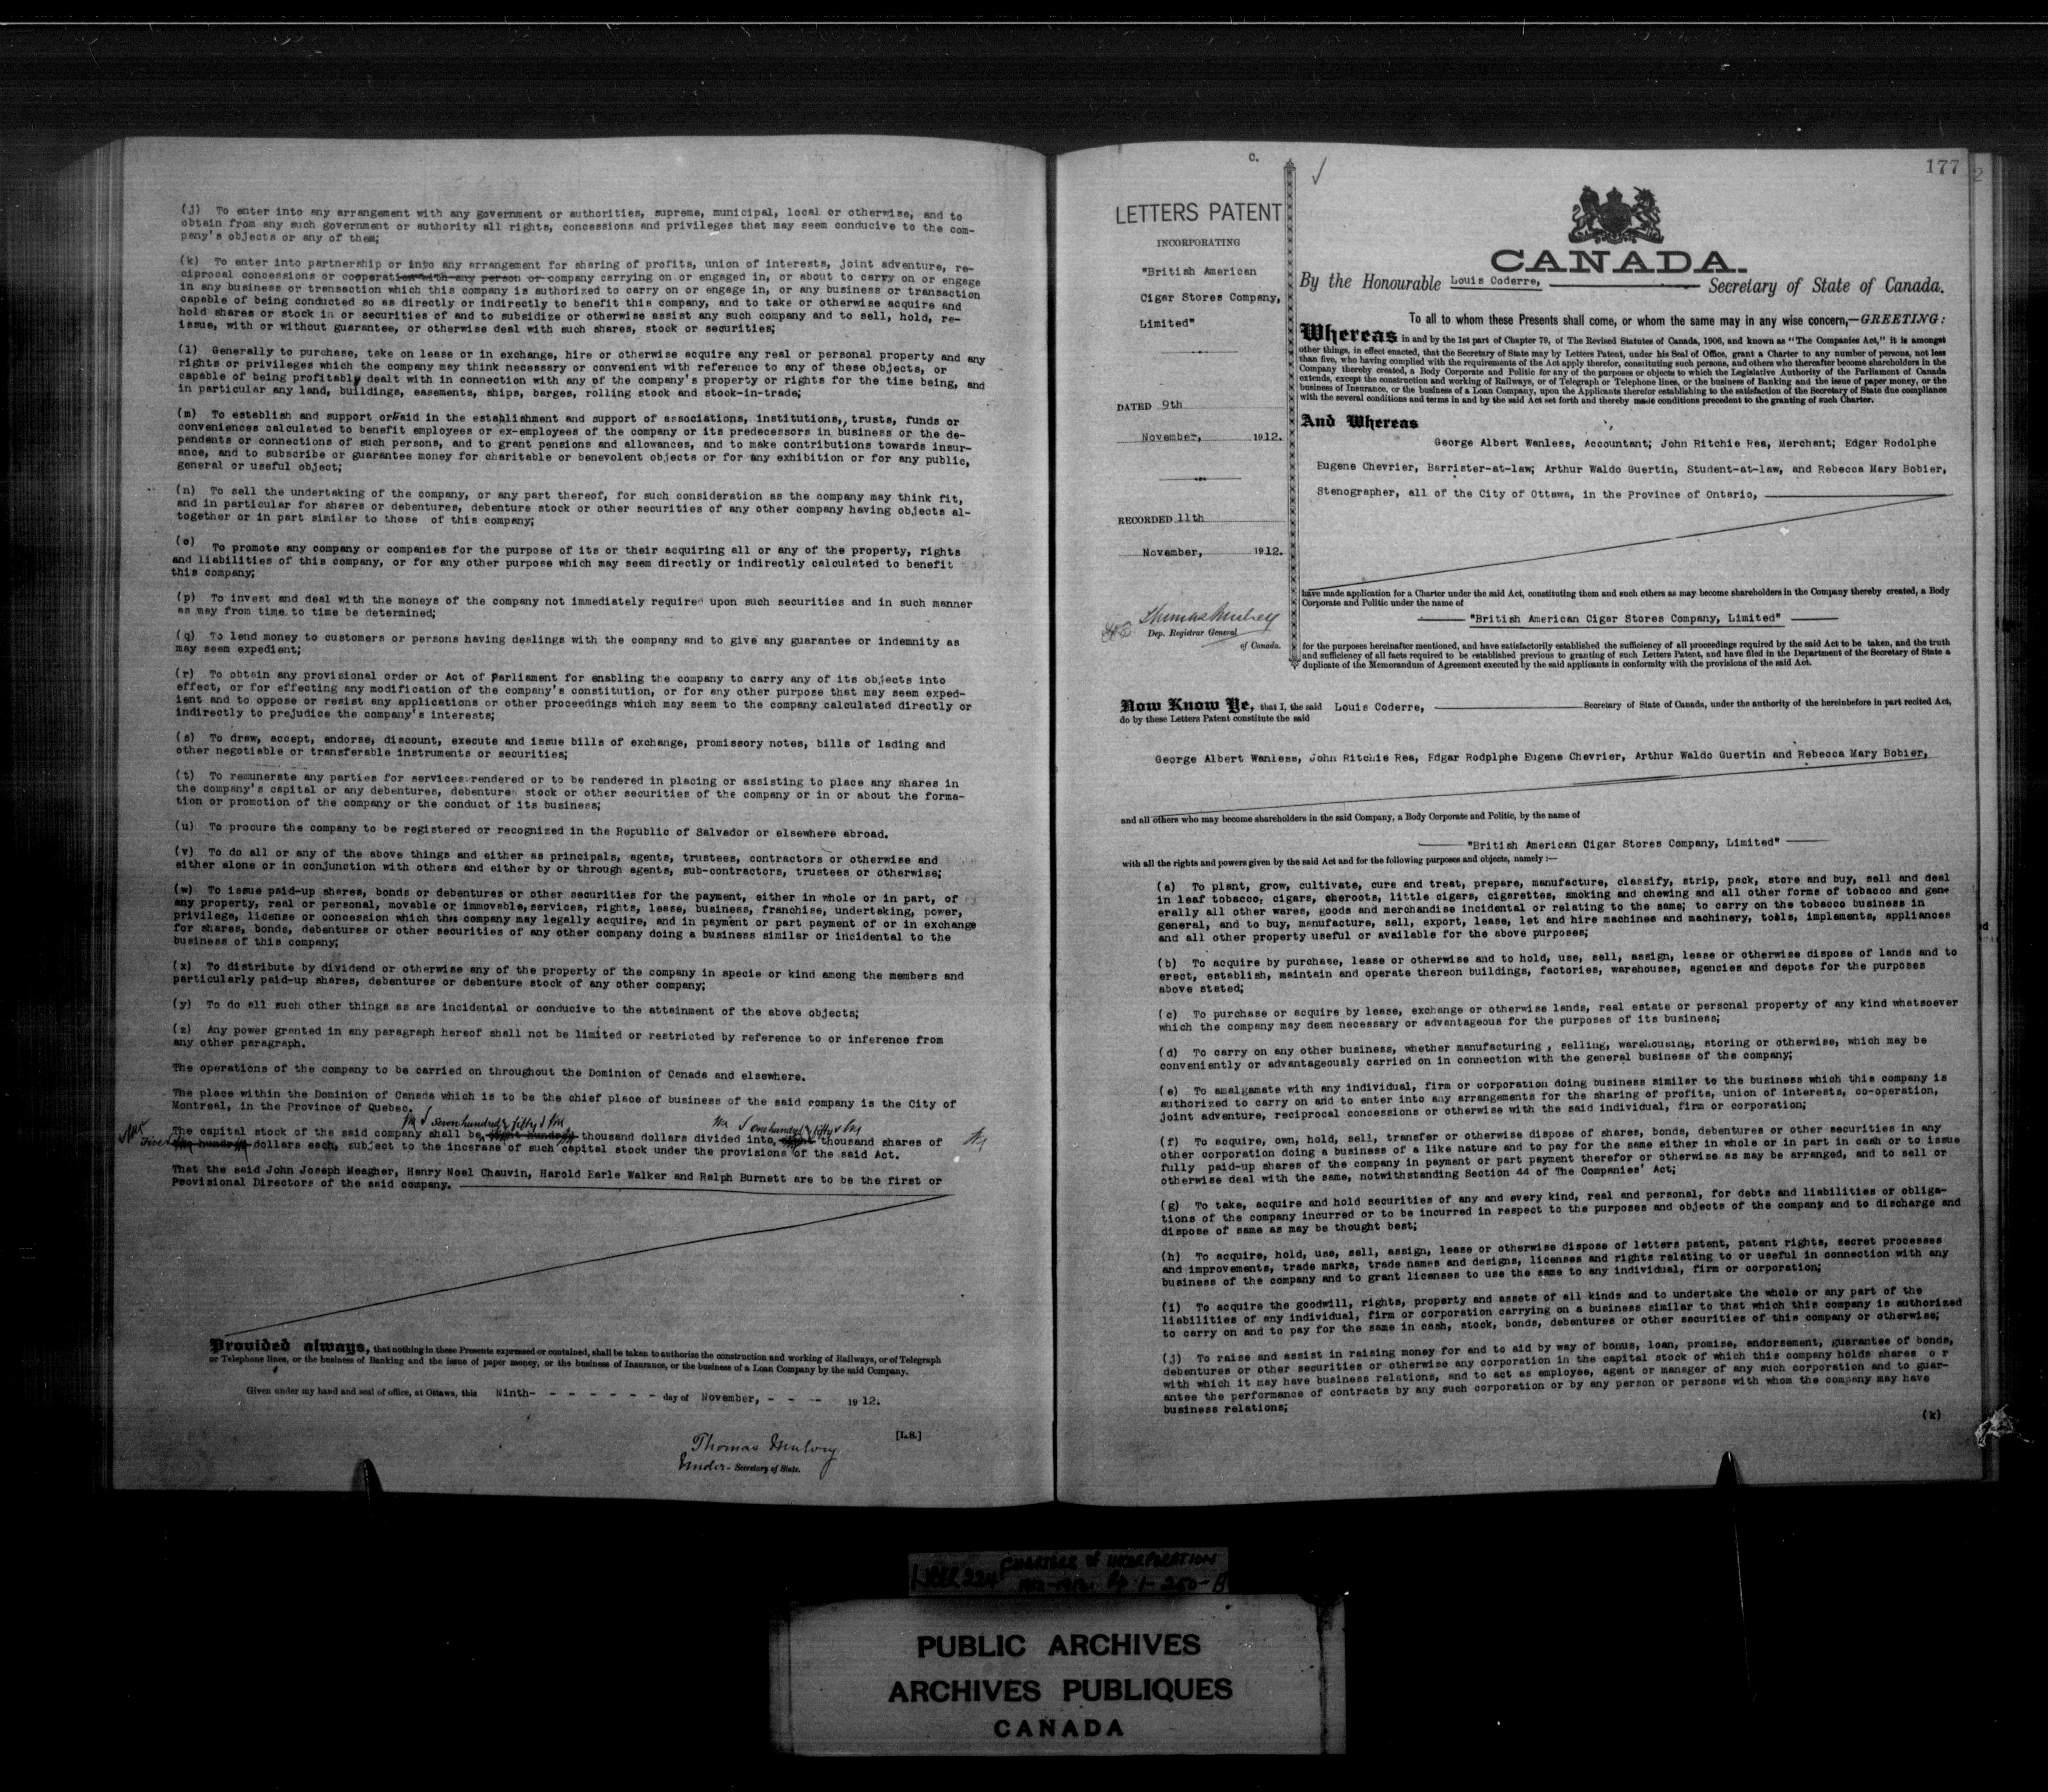 (j) To enter into any arrangement with any government or authorities, supreme, municipal, local or otherwise, and to
obtain from any such government or authority all rights, concessions and privileges that may seem conducive to the com-
pany's objects or any of them;
(k) To enter into partnership or into any arrangement for sharing of profits, union of interests, joint adventure, re-
ciprocal concessions or cooperation with any person or company carrying on or engaged in, or about to carry on or engage
in any business or transaction which this company is authorized to carry on or engage in, or any business or transaction
capable of being conducted so as directly or indirectly to benefit this company, and to take or otherwise acquire and
hold shares or stock in or securities of and to subsidize or otherwise assist any such company and to sell, hold, re-
issue, with or without guarantee, or otherwise deal with such shares, stock or securities;
(l) Generally to purchase, take on lease or in exchange, hire or otherwise acquire any real or personal property and any
rights or privileges which the company may think necessary or convenient with reference to any of these objects, or
capable of being profitably dealt with in connection with any of the company's property or rights for the time being, and
in particular any land, buildings, easements, ships, barges, rolling stock and stock-in-trade;
(m) To establish and support or aid in the establishment and support of associations, institutions, trusts, funds or
conveniences calculated to benefit employees or ex-employees of the company or its predecessors in business or the de-
pendents or connections of such persons, and to grant pensions and allowances, and to make contributions towards insur-
ance, and to subscribe or guarantee money for charitable or benevolent objects or for any exhibition or for any public,
general or useful object;
(n) To sell the undertaking of the company, or any part thereof, for such consideration as the company may think fit,
and in particular for shares or debentures, debenture stock or other securities of any other company having objects al-
together or in part similar to those of this company;
(o) To promote any company or companies for the purpose of its or their acquiring all or any of the property, rights
and liabilities of this company, or for any other purpose which may seem directly or indirectly calculated to benefit
this company;
(p) To invest and deal with the moneys of the company not immediately required upon such securities and in such manner
as may from time to time be determined;
(q) To lend money to customers or persons having dealings with the company and to give any guarantee or indemnity as
may seem expedient;
(r) To obtain any provisional order or Act of Parliament for enabling the company to carry any of its objects into
effect, or for effecting any modification of the company's constitution, or for any other purpose that may seem exped-
ient and to oppose or resist any applications or other proceedings which may seem to the company calculated directly or
indirectly to prejudice the company's interests;
(s) To draw, accept, endorse, discount, execute and issue bills of exchange, promissory notes, bills of lading and
other negotiable or transferable instruments or securities;
(t) To remunerate any parties for services rendered or to be rendered in placing or assisting to place any shares in
the company's capital or any debentures, debenture stock or other securities of the company or in or about the forma-
tion or promotion of the company or the conduct of its business;
(u) To procure the company to be registered or recognized in the Republic of Salvador or elsewhere abroad.
(v) To do all or any of the above things and either as principals, agents, trustees, contractors or otherwise and
either alone or in conjunction with others and either by or through agents, sub-contractors, trustees or otherwise;
(w) To issue paid-up shares, bonds or debentures or other securities for the payment, either in whole or in part, of
any property, real or personal, movable or immovable, services, rights, lease, business, franchise, undertaking, power,
privilege, license or concession which this company may legally acquire, and in payment or part payment of or in exchange
for shares, bonds, debentures or other securities of any other company doing a business similar or incidental to the
business of this company;
(x) To distribute by dividend or otherwise any of the property of the company in specie or kind among the members and
particularly paid-up shares, debentures or debenture stock of any other company;
(y) To do all such other things as are incidental or conducive to the attainment of the above objects;
(z) Any power granted in any paragraph hereof shall not be limited or restricted by reference to or inference from
any other paragraph.
The operations of the company to be carried on throughout the Dominion of Canada and elsewhere.
The place within the Dominion of Canada which is to be the chief place of business of the said company is the City of
Montreal, in the Province of Quebec.
seven hundred & fifty one hundred & fifty
The capital stock of the said company shall be thousand dollars divided into thousand shares of
Five dollars each, subject to the incerase of such capital stock under the provisions of the said Act.
That the said John Joseph Meagher, Henry Noel Chauvin, Harold Earle Walker and Ralph Burnett are to be the first or
Provisional Directors of the said company.
Provided always, that nothing in these Presents expressed or contained, shall be taken to authorize the construction and working of Railways, or of Telegraph
or Telephone lines, or the business of Banking and the issue of paper money, or the business of Insurance, or the business of a Loan Company by the said Company.
Given under my hand and seal of office, at Ottawa, this Ninth- - - - - - - day of November, - - -- 1912.
[L.S.]
Thomas Mulvey
Under- Secretary of State.
C.
177
2
LETTERS PATENT
INCORPORATING
"British American
Cigar Stores Company,
Limited"
DATED 9th
November, 1912.
RECORDED 11th
November, 1912.
Thomas Mulvey
Dep. Registrar General
of Canada.
CANADA.
By the Honourable Louis Coderre, Secretary of State of Canada.
To all to whom these Presents shall come, or whom the same may in any wise concern,—GREETING:
Whereas in and by the 1st part of Chapter 79, of The Revised Statutes of Canada, 1906, and known as "The Companies Act," it is amongst
other things, in effect enacted, that the Secretary of State may by Letters Patent, under his Seal of Office, grant a Charter to any number of persons, not less
than five, who having complied with the requirements of the Act apply therefor, constituting such persons, and others who thereafter become shareholders in the
Company thereby created, a Body Corporate and Politic for any of the purposes or objects to which the Legislative Authority of the Parliament of Canada
extends, except the construction and working of Railways, or of Telegraph or Telephone lines, or the business of Banking and the issue of paper money, or the
business of Insurance, or the business of a Loan Company, upon the Applicants therefor establishing to the satisfaction of the Secretary of State due compliance
with the several conditions and terms in and by the said Act set forth and thereby made conditions precedent to the granting of such Charter.
And Whereas
George Albert Wanless, Accountant; John Ritchie Rea, Merchant; Edgar Rodolphe
Eugene Chevrier, Barrister-at-law; Arthur Waldo Guertin, Student-at-law, and Rebecca Mary Bobier,
Stenographer, all of the City of Ottawa, in the Province of Ontario,
have made application for a Charter under the said Act, constituting them and such others as may become shareholders in the Company thereby created, a Body
Corporate and Politic under the name of
"British American Cigar Stores Company, Limited"
for the purposes hereinafter mentioned, and have satisfactorily established the sufficiency of all proceedings required by the said Act to be taken, and the truth
and sufficiency of all facts required to be established previous to granting of such Letters Patent, and have filed in the Department of the Secretary of State a
duplicate of the Memorandum of Agreement executed by the said applicants in conformity with the provisions of the said Act.
Now Know Ye, that I, the said Louis Coderre, Secretary of State of Canada, under the authority of the hereinbefore in part recited Act,
do by these Letters Patent constitute the said
George Albert Wanless, John Ritchie Rea, Edgar Rodplphe Eugene Chevrier, Arthur Waldo Guertin and Rebecca Mary Bobier,
and all others who may become shareholders in the said Company, a Body Corporate and Politic, by the name of
"British American Cigar Stores Company, Limited"
with all the rights and powers given by the said Act and for the following purposes and objects, namely :—
(a) To plant, grow, cultivate, cure and treat, prepare, manufacture, classify, strip, pack, store and buy, sell and deal
in leaf tobacco, cigars, cheroots, little cigars, cigarettes, smoking and chewing and all other forms of tobacco and gen-
erally all other wares, goods and merchandise incidental or relating to the same; to carry on the tobacco business in
general, and to buy, manufacture, sell, export, lease, let and hire machines and machinery, tools, implements, appliances
and all other property useful or available for the above purposes;
(b) To acquire by purchase, lease or otherwise and to hold, use, sell, assign, lease or otherwise dispose of lands and to
erect, establish, maintain and operate thereon buildings, factories, warehouses, agencies and depots for the purposes
above stated;
(c) To purchase or acquire by lease, exchange or otherwise lands, real estate or personal property of any kind whatsoever
which the company may deem necessary or advantageous for the purposes of its business;
(d) To carry on any other business, whether manufacturing, selling, warehousing, storing or otherwise, which may be
conveniently or advantageously carried on in connection with the general business of the company;
(e) To amalgamate with any individual, firm or corporation doing business similar to the business which this company is
authorized to carry on and to enter into any arrangements for the sharing of profits, union of interests, co-operation,
joint adventure, reciprocal concessions or otherwise with the said individual, firm or corporation;
(f) To acquire, own, hold, sell, transfer or otherwise dispose of shares, bonds, debentures or other securities in any
other corporation doing a business of a like nature and to pay for the same either in whole or in part in cash or to issue
fully paid-up shares of the company in payment or part payment therefor or otherwise as may be arranged, and to sell or
otherwise deal with the same, notwithstanding Section 44 of The Companies' Act;
(g) To take, acquire and hold securities of any and every kind, real and personal, for debts and liabilities or obliga-
tions of the company incurred or to be incurred in respect to the purposes and objects of the company and to discharge and
dispose of same as may be thought best;
(h) To acquire, hold, use, sell, assign, lease or otherwise dispose of letters patent, patent rights, secret processes
and improvements, trade marks, trade names and designs, licenses and rights relating to or useful in connection with any
business of the company and to grant licenses to use the same to any individual, firm or corporation;
(i) To acquire the goodwill, rights, property and assets of all kinds and to undertake the whole or any part of the
liabilities of any individual, firm or corporation carrying on a business similar to that which this company is authorized
to carry on and to pay for the same in cash, stock, bonds, debentures or other securities of this company or otherwise;
(j) To raise and assist in raising money for and to aid by way of bonus, loan, promise, endorsement, guarantee of bonds,
debentures or other securities or otherwise any corporation in the capital stock of which this company holds shares o r
with which it may have business relations, and to act as employee, agent or manager of any such corporation and to guar-
antee the performance of contracts by any such corporation or by any person or persons with whom the company may have
business relations;
(k)
CHARTERS of INCORPORATION
1912-1913. Pp 1-250-B
PUBLIC ARCHIVES
ARCHIVES PUBLIQUES
CANADA